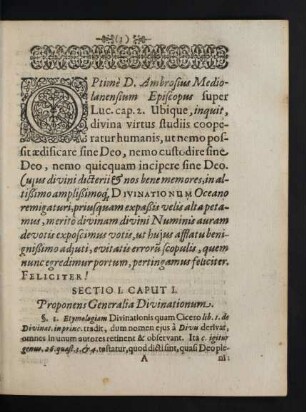 (1)
OPtimè D. Ambrosius Medio-
lanensium Episcopus super
Luc. cap. 2. Ubique, inquit,
divina virtus studiis coope-
ratur humanis, ut nemo pos-
sit ædificare sine Deo, nemo custodire sine
Deo, nemo quicquam incipere sine Deo.
Cujus divini dicterii & nos bene memores, in al-
tissimo amplissimoq; DIVINATIONUM Oceano
remigaturi, priusquam expassis velis alta peta-
mus, meritò divinam divini Numinis auram
devotis exposcimus votis, ut hujus afflatu beni-
gnissimo adjuti, evitatis errorū scopulis, quem
nunc egredimur portum, pertingamus feliciter.
FELICITER!
SECTIO I. CAPUT I.
Proponens Generalia Divinationum.
§. 1. Etymologiam Divinationis quam Cicero lib. 1. de
Divinat. in princ. tradit, dum nomen ejus à Divis derivat,
omnes in unum autores retinent & observant. Ita c. igitur
genus. 26. quæst. 3. & 4. testatur, quod dicti sint, quasi Deo ple-
A
ni